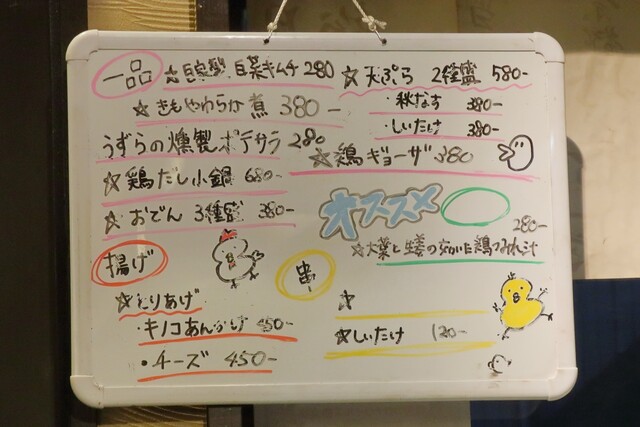 一品
☆自家製 白菜キムチ 280
☆きもやわらか煮 380-
うずらの燻製ポテサラ 280
☆鶏だし小鍋 680-
☆おでん 3種盛 380-
☆天ぷら 2種盛 580-
・秋なす 380-
・しいたけ 380-
☆鶏ギョーザ 380
オススメ
280-
☆大葉と生姜の効いた鶏つみれ汁
揚げ
☆とりあげ
・キノコあんかけ 450-
・チーズ 450-
串
☆
☆しいたけ 120-